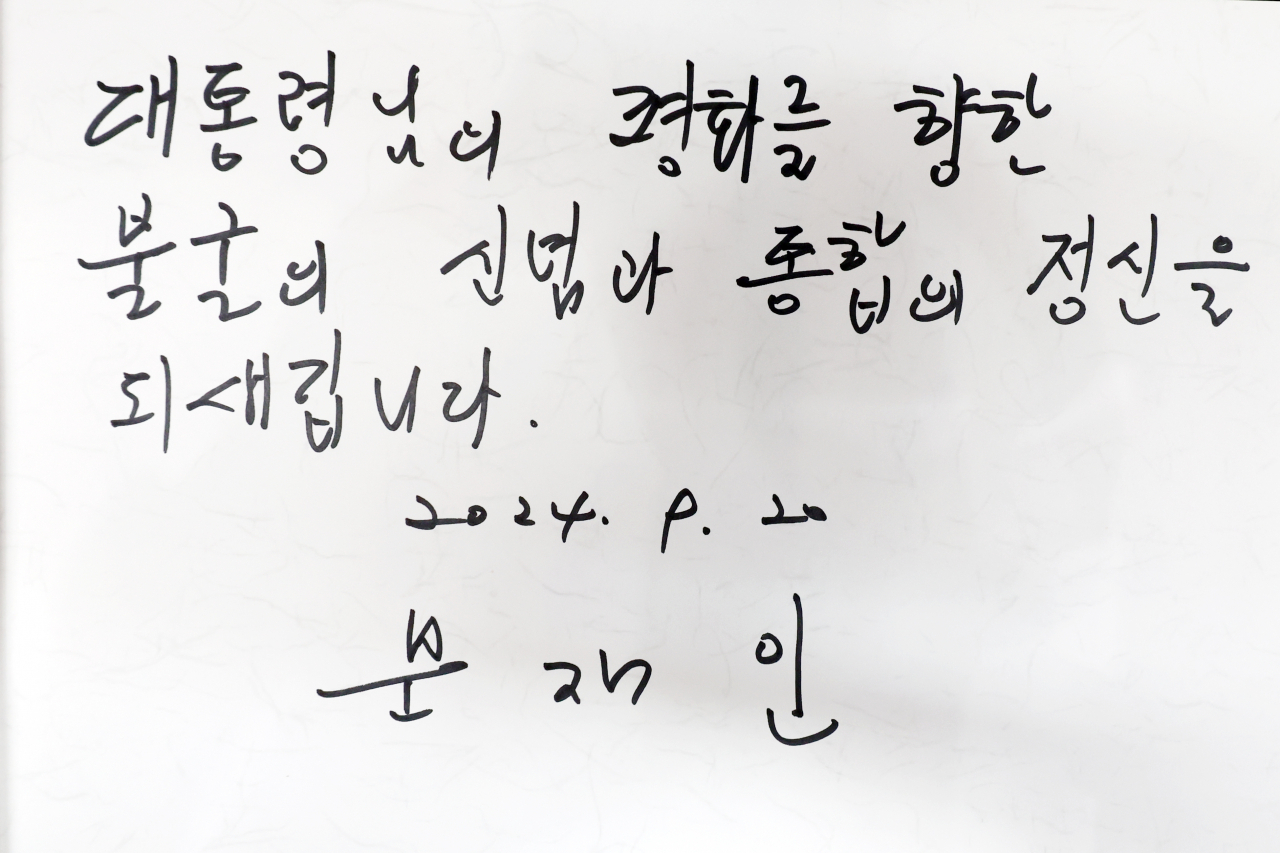 대통령님의 평화를 향한
불굴의 신념과 통합의 정신을
되새깁니다.
2024. 9. 20
문재인